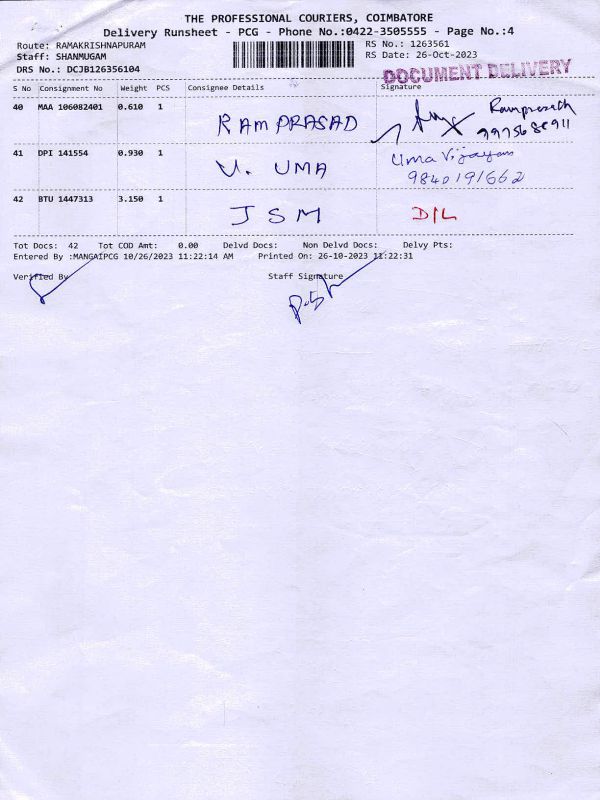 THE PROFESSIONAL COURIERS, COIMBATORE
Delivery Runsheet - PCG - Phone No.:0422-3505555 - Page No.:4
Route: RAMAKRISHNAPURAM RS No.: 1263561
Staff: SHANMUGAM RS Date: 26-Oct-2023
DRS No.: DCJB126356104 DOCUMENT DELIVERY
S No Consignment No Weight PCS Consignee Details Signature
40 MAA 106082401 0.610 1 RAM PRASAD Ramprasath
41 DPI 141554 0.930 1 V. UMA Uma Vijayan
9840191662
42 BTU 1447313 3.150 1 JSM D/L
Tot Docs: 42 Tot COD Amt: 0.00 Delvd Docs: Non Delvd Docs: Delvy Pts:
Entered By :MANGAIPCG 10/26/2023 11:22:14 AM Printed On: 26-10-2023 11:22:31
Verified By Staff Signature